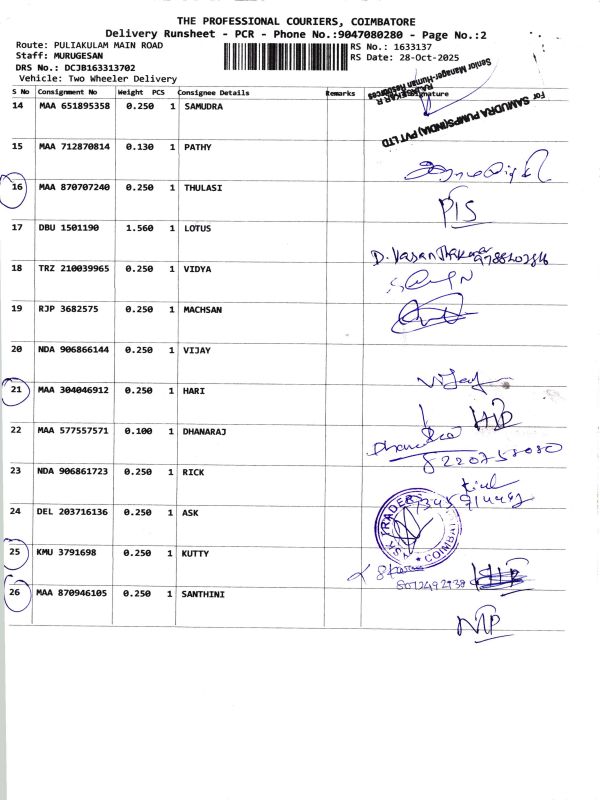 THE PROFESSIONAL COURIERS, COIMBATORE
Delivery Runsheet - PCR - Phone No.:9047080280 - Page No.:2
Route: PULIAKULAM MAIN ROAD
RS No.: 1633137
Staff: MURUGESAN
RS Date: 28-Oct-2025
DRS No.: DCJB163313702
Vehicle: Two Wheeler Delivery
S No Consignment No Weight PCS Consignee Details Remarks Signature
For SAMUDRA PUMPS(INDIA) PVT LTD
RAJSEKAR R
Senior Manager-Human Resources
14 MAA 651895358 0.250 1 SAMUDRA
15 MAA 712870814 0.130 1 PATHY
16 MAA 870707240 0.250 1 THULASI
PTS
17 DBU 1501190 1.560 1 LOTUS
18 TRZ 210039965 0.250 1 VIDYA
19 RJP 3682575 0.250 1 MACHSAN
20 NDA 906866144 0.250 1 VIJAY
Vijay
21 MAA 304046912 0.250 1 HARI
22 MAA 577557571 0.100 1 DHANARAJ
23 NDA 906861723 0.250 1 RICK
24 DEL 203716136 0.250 1 ASK
ASK TRADERS
COIMBATORE
25 KMU 3791698 0.250 1 KUTTY
26 MAA 870946105 0.250 1 SANTHINI
NTP